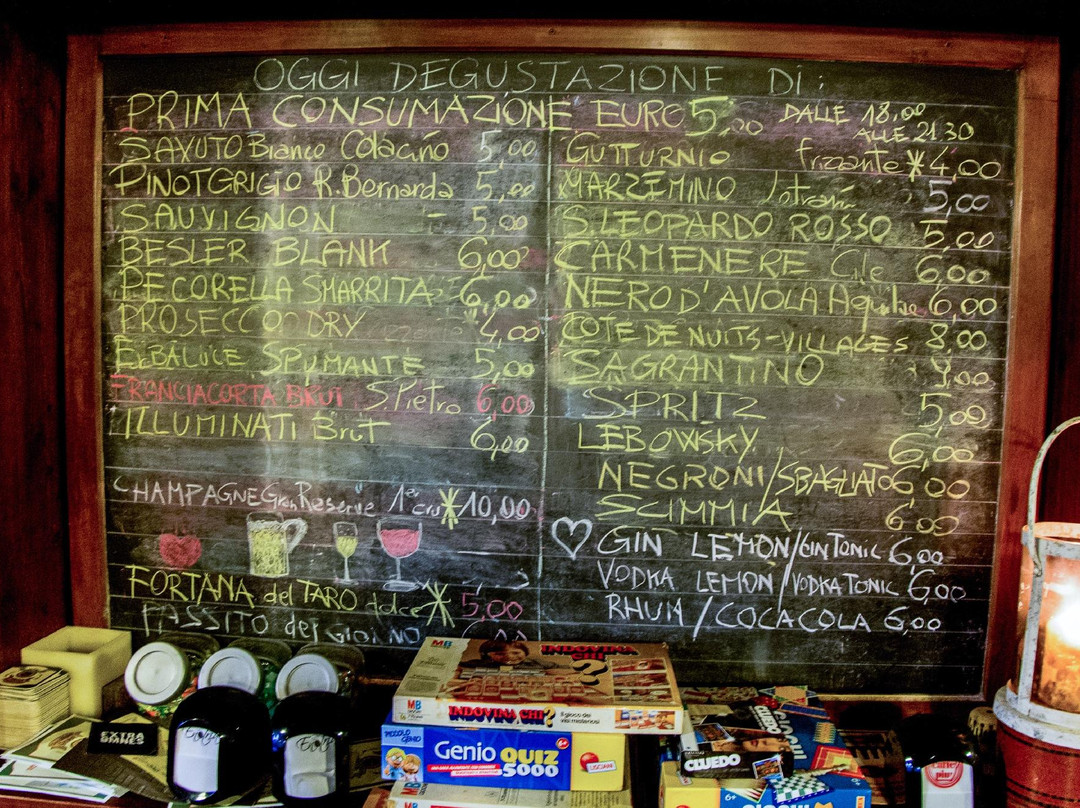 OGGI DEGUSTAZIONE DI:
PRIMA CONSUMAZIONE EURO 5,00 DALLE 18,00
ALLE 21 30
SAVUTO Bianco Colacino 5,00
PINOT GRIGIO R. Bernarda 5,00
SAUVIGNON - 5,00
BESLER BLANK 6,00
PECORELLA SMARRITA 6,00
PROSECCO DRY 4,00
ERBALUCE SPUMANTE 5,00
FRANCIACORTA BRUT S. Pietro 6,00
ILLUMINATI Brut 6,00
CHAMPAGNE Gran Reserve 1er cru * 10,00
FORTANA del TARO dolce * 5,00
PASSITO del GIORNO 6,00
GUTTURNIO frizzante * 4,00
MARZEMINO 5,00
S. LEOPARDO ROSSO 5,00
CARMENERE Cile 6,00
NERO D'AVOLA 6,00
COTE DE NUITS-VILLAGES 8,00
SAGRANTINO
SPRITZ 5,00
LEBOWSKY 6,00
NEGRONI/SBAGLIATO 6,00
SCIMMIA 6,00
GIN LEMON/GIN TONIC 6,00
VODKA LEMON/VODKA TONIC 6,00
RHUM/COCACOLA 6,00
MB
INDOVINA CHI?
MB INDOVINA CHI? Il gioco dei visi misteriosi
PICCOLO GENIO
Genio QUIZ 5000
LISCIANI
CLUEDO
6+
EXTRA OMNES